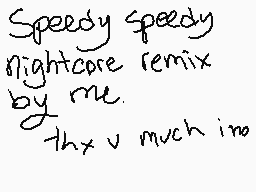 Speedy speedy
nightcore remix
by me.
thx v much